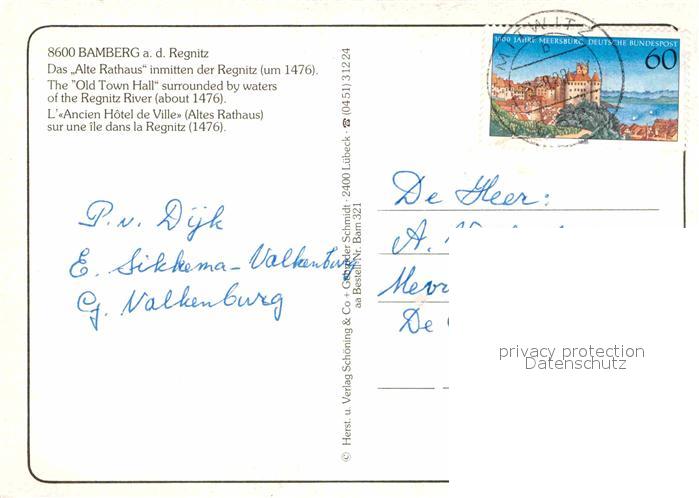 8600 BAMBERG a. d. Regnitz
Das „Alte Rathaus“ inmitten der Regnitz (um 1476).
The "Old Town Hall" surrounded by waters
of the Regnitz River (about 1476).
L'«Ancien Hôtel de Ville» (Altes Rathaus)
sur une île dans la Regnitz (1476).
P. v. Dijk
E. Sikkema-Valkenburg
G. Valkenburg
© Herst. u. Verlag Schöning & Co + Gebrüder Schmidt · 2400 Lübeck · ☎ (04 51) 3 12 24
aa Bestell Nr. Bam 321
MITWITZ
1000 JAHRE MEERSBURG DEUTSCHE BUNDESPOST
60
De Heer:
A.
Mevr
De
privacy protection
Datenschutz